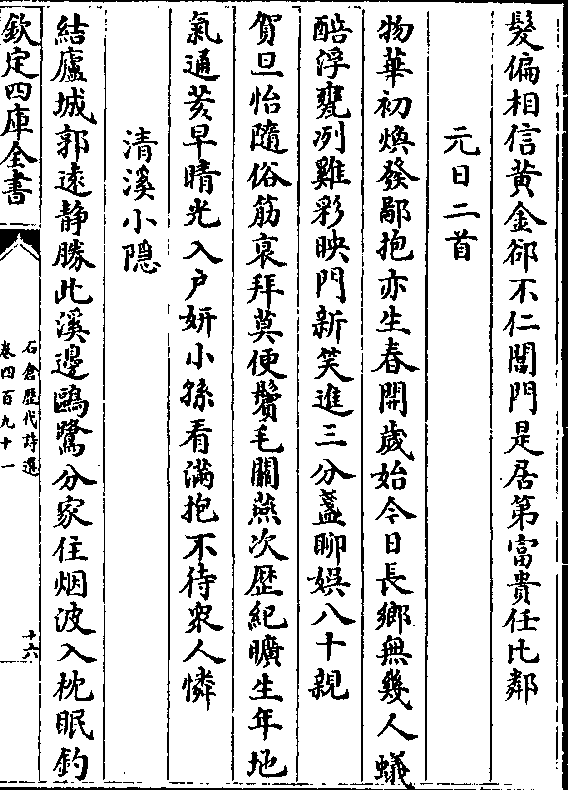 髮偏相信黄金郤不仁閶門是居第富貴任比鄰
元日二首
物華初煥發鄙抱亦生春開歲始今日長鄉無幾人蟻
醅浮甕冽雞彩映門新笑進三分盞聊娯八十親
賀旦怡隨俗筋衰拜莫便鬢毛關燕次歴紀曠生年地
氣通荄早晴光入户妍小孫看滿抱不待衆人憐
清溪小隠
結廬城郭遠静勝此溪邊鷗鷺分家住烟波入枕眠釣
欽定四庫全書
石倉歴代詩選
卷四百九十一
十六